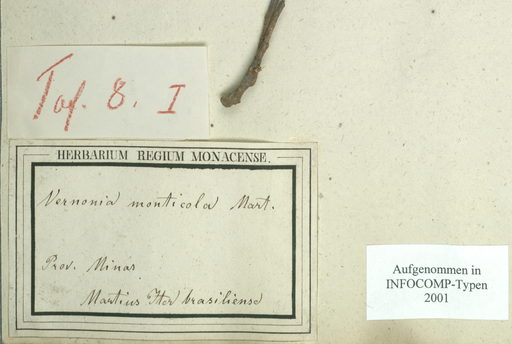 Taf. 8. I
HERBARIUM REGIUM MONACENSE.
Vernonia monticola Mart.
Prov. Minas
Martius Iter brasiliense
Aufgenommen in
INFOCOMP-Typen
2001